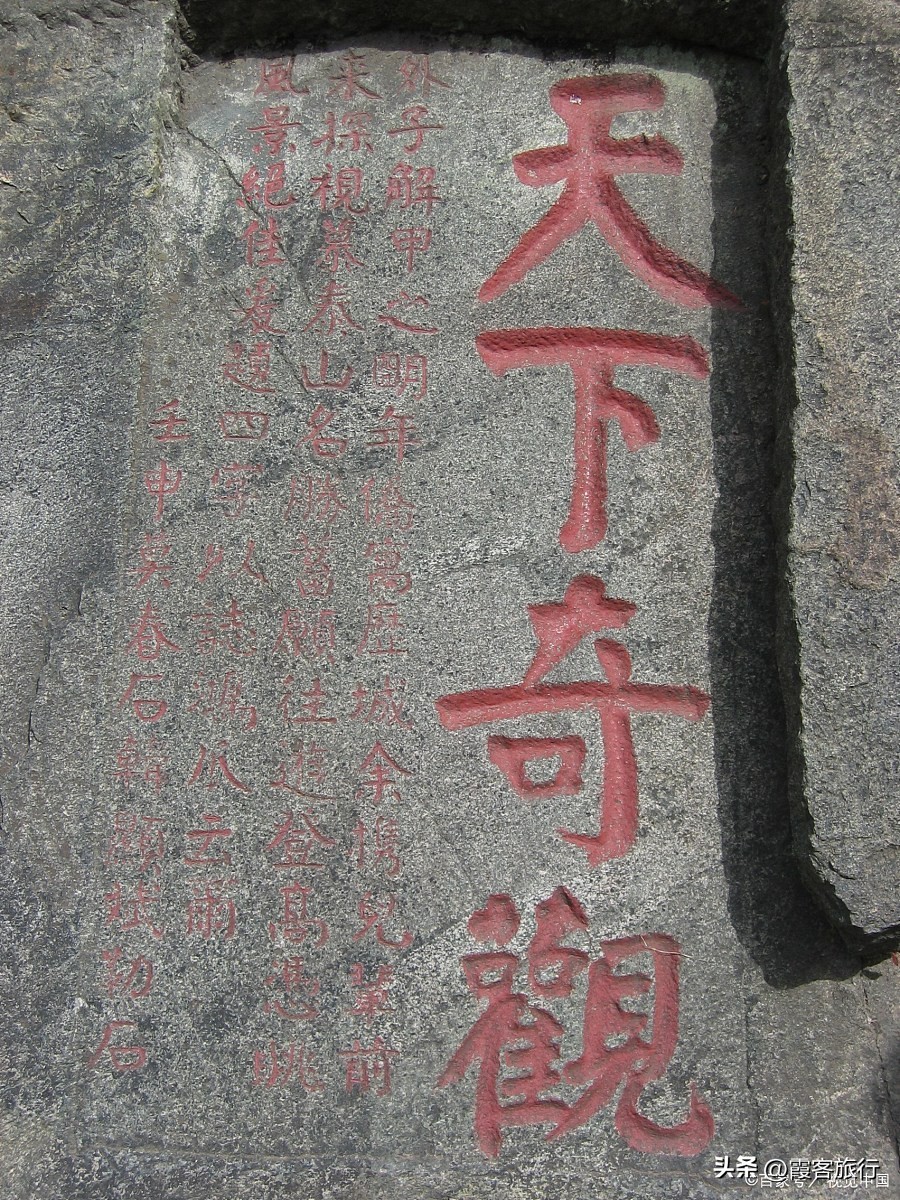 天下奇觀
外子解甲之明年僑寓歷城余携兒輩前
来探視慕泰山名勝蓄願往遊登高憑眺
風景絕佳爰題四字以誌鴻爪云爾
壬申莫春石
顯斌勒石
头条 @霞客旅行
©百家号/视觉中国